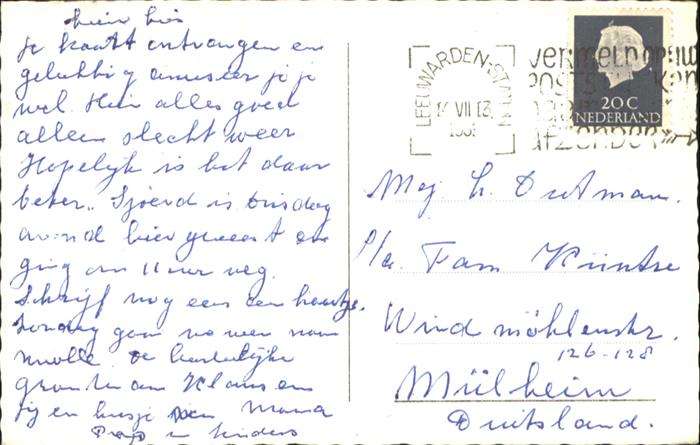 hier
Je kaart ontvangen en
gelukkig amuseer je je
wel. Hier alles goed
alleen slecht weer
Hopelijk is het daar
beter. Sjoerd is Dinsdag
avond hier geweest en
ging om 11 uur weg.
Schrijf nog eens een kaartje.
Zondag gaan we weer naar
de hartelijke
groeten aan Klaus en
jij en kusje Mama
Pap en kinders
LEEUWARDEN
VII
Vermeld op uw
afzender
20 C
NEDERLAND
Mej.
p/a Fam
126-128
Mülheim
Duitsland.